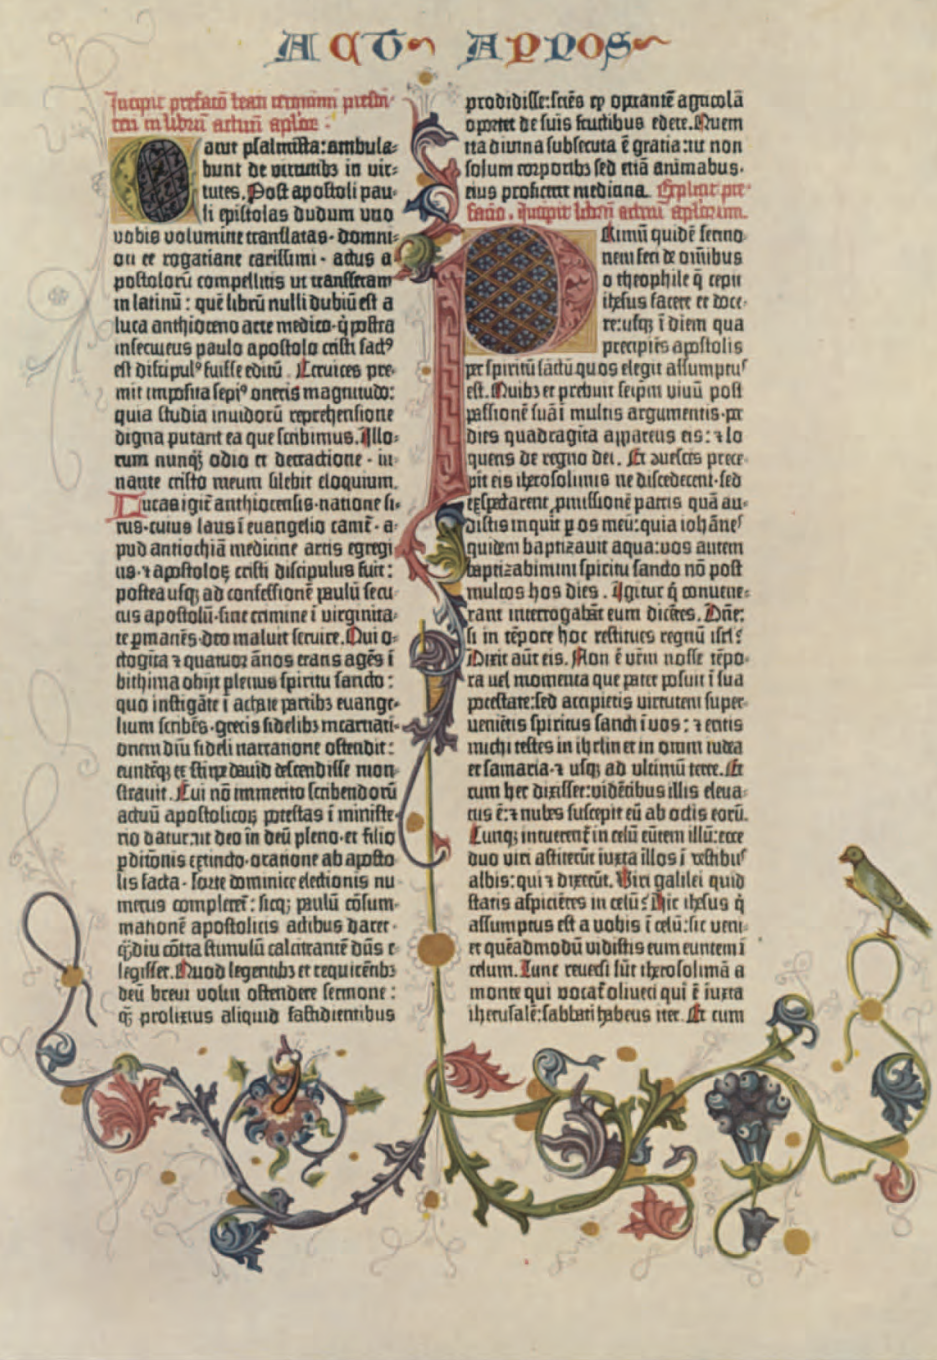 ACTꝰ APPLOS
Incipit prefatō beati ieronimi presbi-
teri in librū actuū aplorꝫ :
Canit psalmista: ambula-
bunt de virtutibꝫ in vir-
tutes. Post apostoli pau-
li epistolas dudum uno
vobis volumine translatas · domni-
on et rogatiane carissimi · actus a
postolorū compellitis ut transferam
in latinū : quē librū nulli dubiū est a
luca anthioceno arte medico · q̄ postea
inserviens paulo apostolo cristi factꝰ
est discipulꝰ fuisse editū . Cervices pre-
mit imposita sepiꝰ oneris magnitudo:
quia studia invidorū reprehensione
digna putant ea que scribimus. Illo-
rum nunqꝫ odio et detractione · iu-
vante cristo meum silebit eloquium.
Lucas igit̄ anthiocensis · natione si-
rus · cuius laus ī euangelio canit̄ · a-
pud antiochiā medicine artis egregi-
us · ⁊ apostoloꝝ cristi discipulus fuit:
postea usqꝫ ad confessionē paulū secu-
tus apostolū · sine crimine ī virginita-
te ꝑmanēs · deo maluit servire. Qui o-
ctogīta ⁊ quatuor ānos etatis agēs ī
bithinia obijt plenus spiritu sancto :
quo instigāte ī achaie partibꝫ euange-
lium scribēs · grecis fidelibꝫ incarnati-
onem dn̄i fideli narratione ostendit :
eundēqꝫ ex stirpe dauid descendisse mon-
stravit. Cui nō immerito scribendorū
actuū apostolicoꝝ potestas ī ministe-
rio datur: ut deo in deū pleno · et filio
ꝑditōnis extincto · oratione ab aposto-
lis facta · sorte dominice electionis nu-
merus compleret̄ : sicqꝫ paulū cōsum-
mationē apostolicis actibus daret ·
quē diu cōtra stimulū calcitrantē dn̄s e-
legisset. Quod legentibꝫ et requirētibꝫ
deū brevi volui ostendere sermone :
qꝫ prolixius aliquid fastidientibus
prodidisse: sciēs qꝫ operantē agricolā
oportet de suis fructibus edere. Quem
ita divina subsecuta ē gratia: ut non
solum corporibꝫ sed etiā animabus ·
eius proficeret medicina. Explicit pre-
facio. Incipit libri actuū aplorum.
Primū quidē sermo-
nem feci de omībus
o theophile q̄ cepit
ihesus facere et doce-
re: usqꝫ ī diem qua
precipiēs apostolis
per spiritū sāctū quos elegit assumptuſ
est. Quibꝫ et prebuit seip̄m vivū post
passionē suā ī multis argumentis · ꝑ
dies quadragīta apparens eis: ⁊ lo-
quens de regno dei. Et convescēs prece-
pit eis iherosolimis ne discederent · sed
expectarent ꝓmissionē patris quā au-
distis inquit ꝑ os meū: quia iohānes
quidem baptizavit aqua: vos autem
baptizabimini spiritu sancto nō post
multos hos dies . Igitur q̄ convene-
rant interrogabāt eum dicētes. Dn̄e:
si in tēpore hoc restitues regnū isrl̄ ?
Dixit aūt eis. Non ē vr̄m nosse tēpo-
ra vel momenta que pater posuit ī sua
potestate: sed accipietis virtutem super-
venietis spiritus sancti ī vos : ⁊ eritis
michi testes in ihrl̄m et in omni iudea
et samaria · ⁊ usqꝫ ad ultimū terre. Et
cum hec dixisset: vidētibus illis eleva-
tus ē: ⁊ nubes suscepit eū ab oclis eorū.
Cunqꝫ intuerent̄ in celū eūtem illū: ecce
duo viri astiterūt iuxta illos ī vestibus
albis: qui ⁊ dixerūt. Viri galilei quid
statis aspicietes in celū? Hic ihesus q̄
assumptus est a vobis ī celū: sic veni-
et quēadmodū vidistis eum euntem ī
celum. Tunc reversi sūt iherosolimā a
monte qui vocat̄ oliveti qui ē iuxta
iherusalē: sabbati habens iter. Et cum